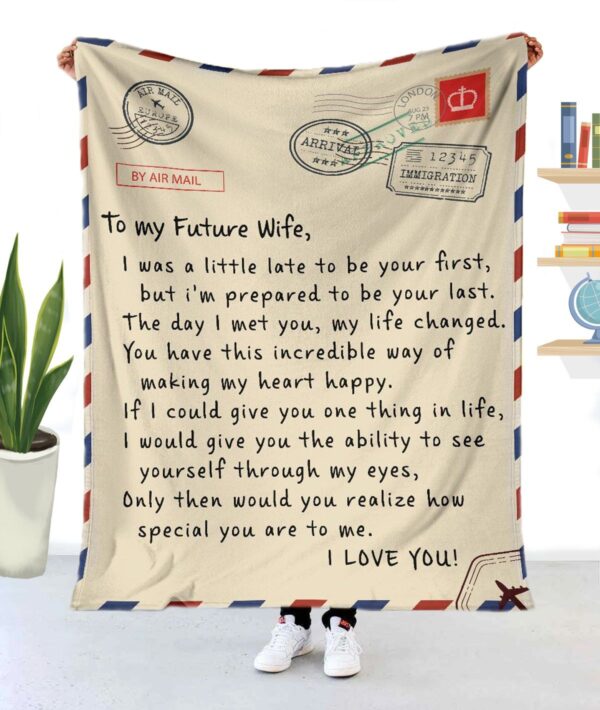 AIR MAIL
EUROPE
LONDON
AUG 25
7 PM
ARRIVAL
12345
IMMIGRATION
BY AIR MAIL
To my Future Wife,
I was a little late to be your first,
but i'm prepared to be your last.
The day I met you, my life changed.
You have this incredible way of
making my heart happy.
If I could give you one thing in life,
I would give you the ability to see
yourself through my eyes,
Only then would you realize how
special you are to me.
I LOVE YOU!